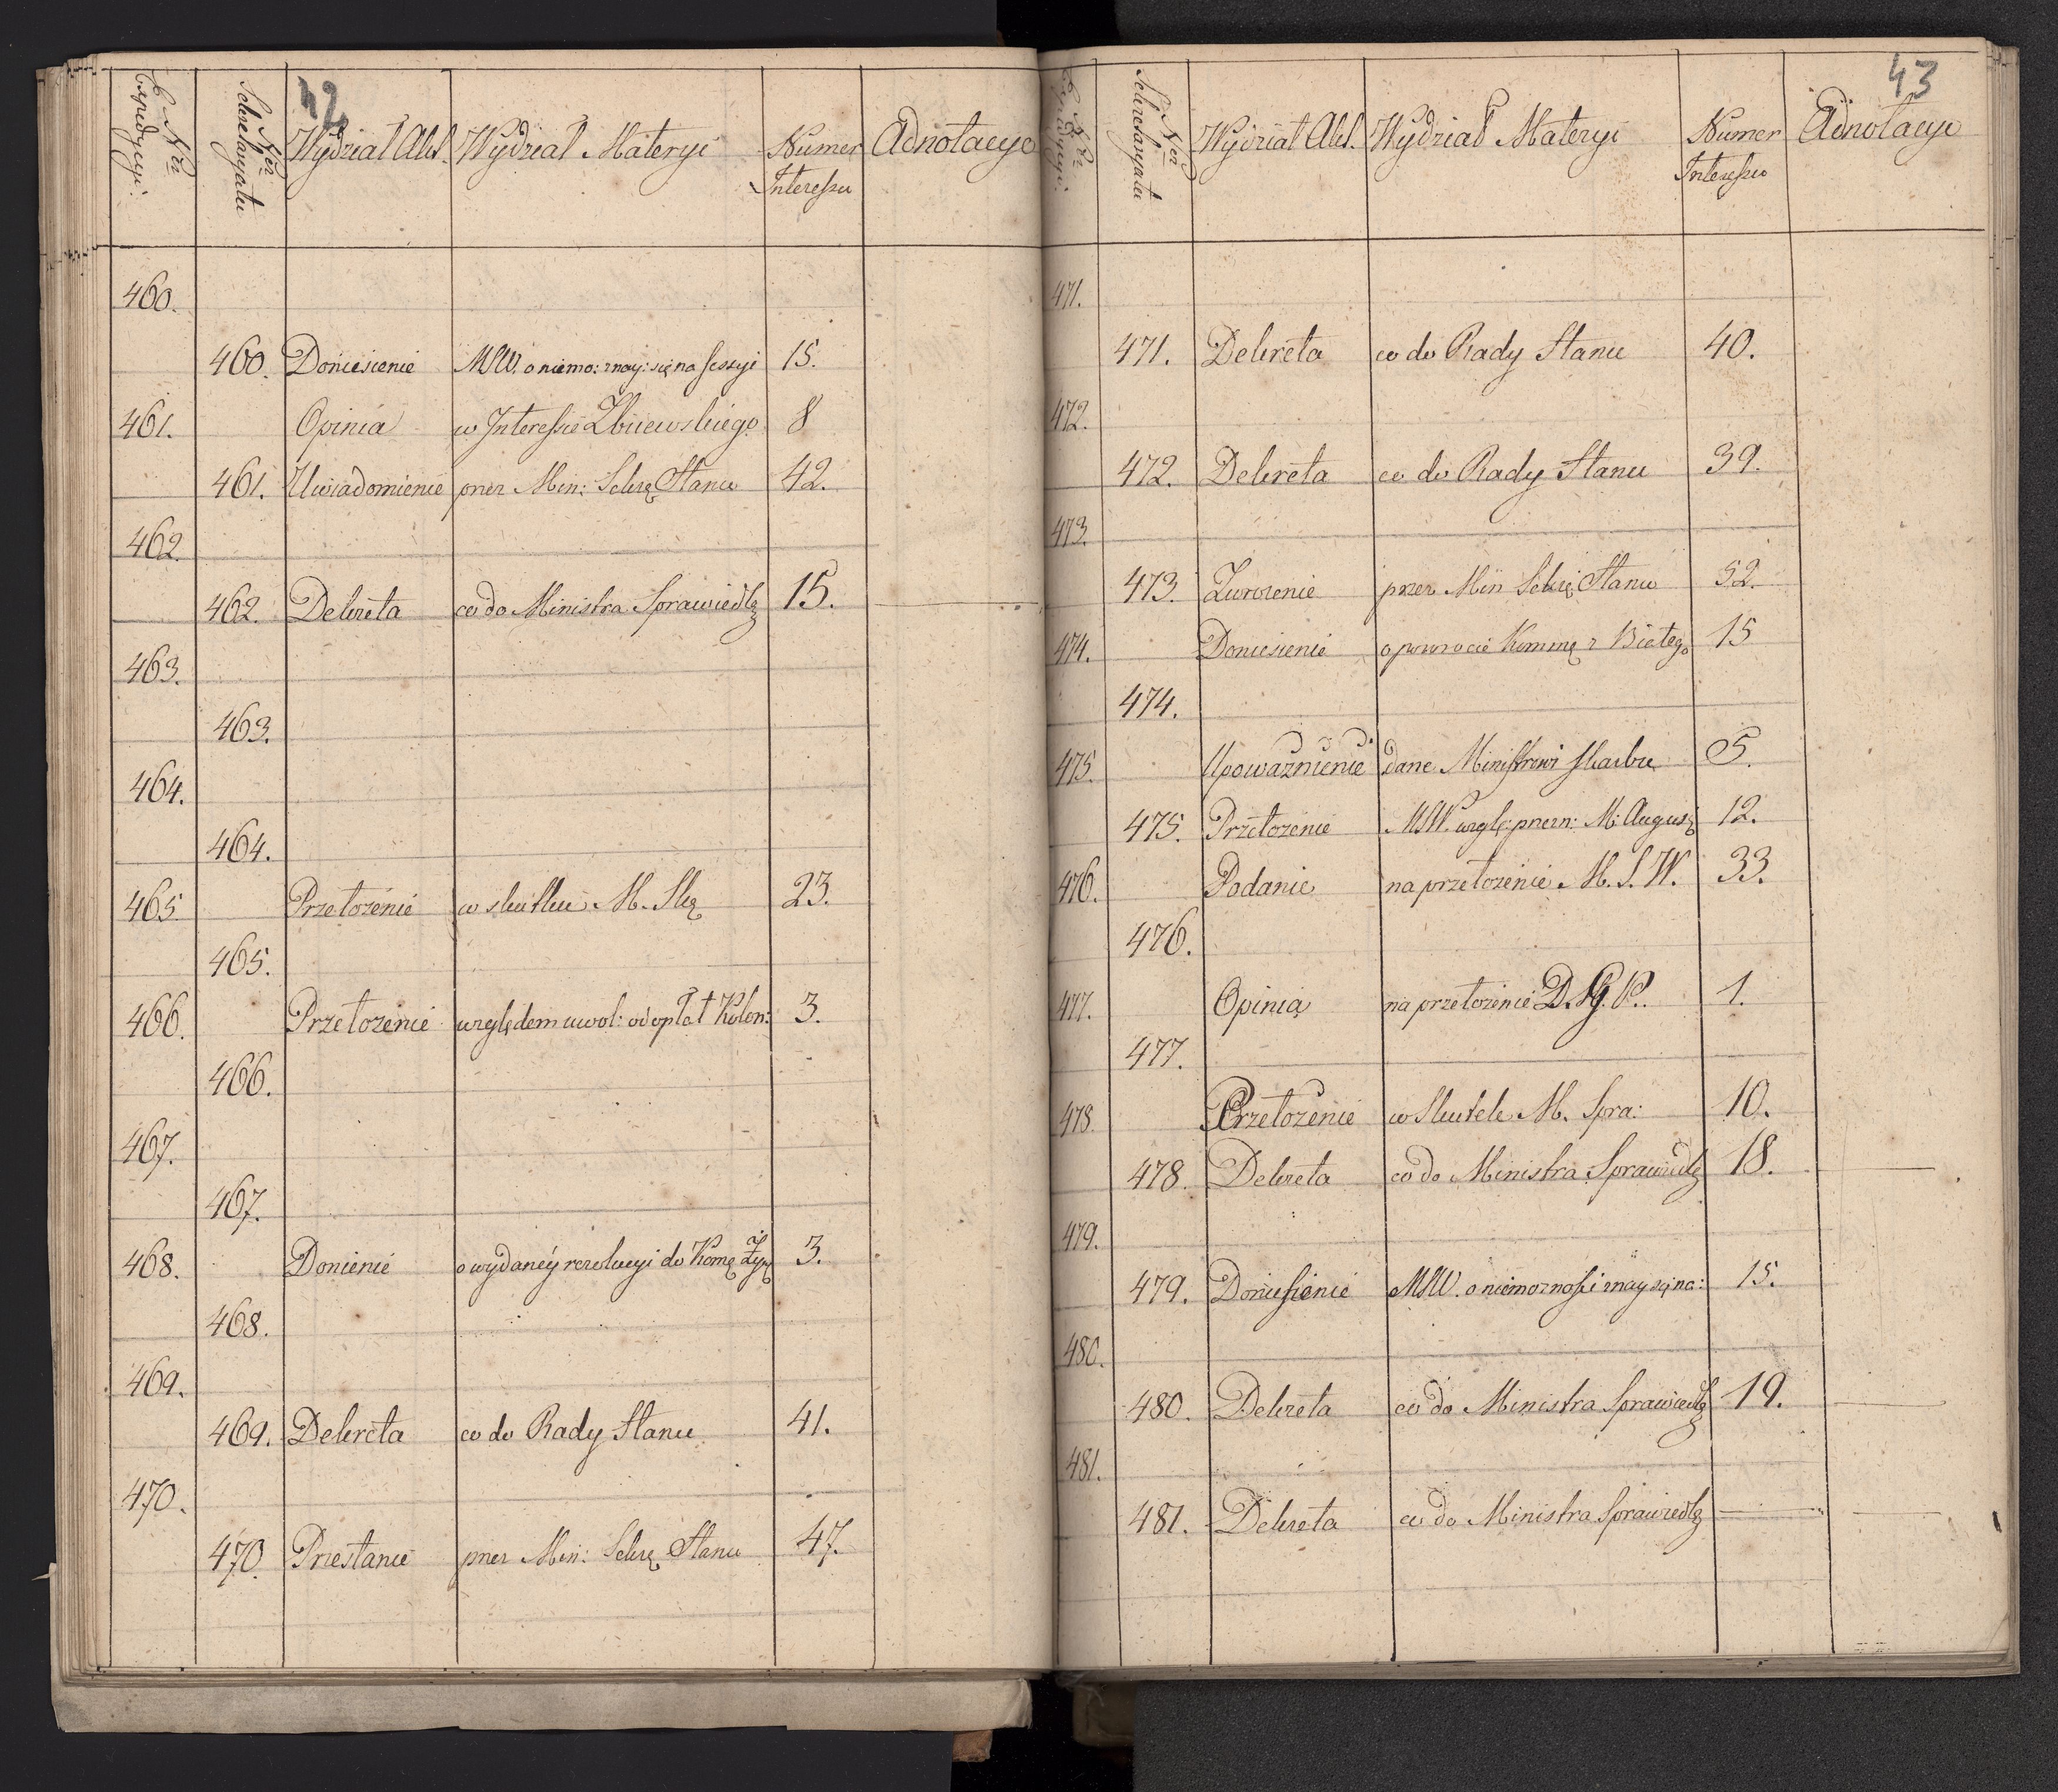 42
Nro Expedycyi. Nro Sekretaryatu Wydział Akt. Wydział Materyi Numer Interessu Adnotacye
460.
460. Doniesienie MSW. o niemo: znay: się na sessyi 15.
461. Opinia w Interessie Zbiiewskiego 8
461. Uwiadomienie przez Min: Sekrę Stanu 42.
462
462. Dekreta co do Ministra Sprawiedlę 15.
463.
463.
464.
464.
465 Przełożenie w skutku M. Skę 23.
465.
466. Przełożenie względem uwol: od opłat Kolon: 3.
466.
467.
467.
468. Donienie o wydanéy rezolucyi do Komę Żyę 3.
468.
469.
469. Dekreta co do Rady Stanu 41.
470.
470. Przesłanie przez Min: Sekrę Stanu 47.
43
Nro Expedycyi. Nro Sekretaryatu Wydział Akt. Wydział Materyi Numer Interessu Adnotacye
471.
471. Dekreta co do Rady Stanu 40.
472.
472. Dekreta co do Rady Stanu 39.
473.
473. Zwrocenie przez Min Sekrę Stanu 52.
474. Doniesienie o powrocie Kommę z Białego 15
474.
475. Upoważnienie dane Ministrowi Skarbu 5.
475. Przełożenie MSW. wzglę: przezn: M: Augusę 12.
476. Podanie na przełożenie M. S. W. 33.
476.
477. Opinia na przełożenie D. J. P. 1.
477.
478. Przełożenie w Skutek M. Spra: 10.
478. Dekreta co do Ministra Sprawiedlę 18.
479.
479. Doniesienie MSW. o niemożności znay się na: 15.
480.
480. Dekreta co do Ministra Sprawiedlę 19.
481.
481. Dekreta co do Ministra Sprawiedlę